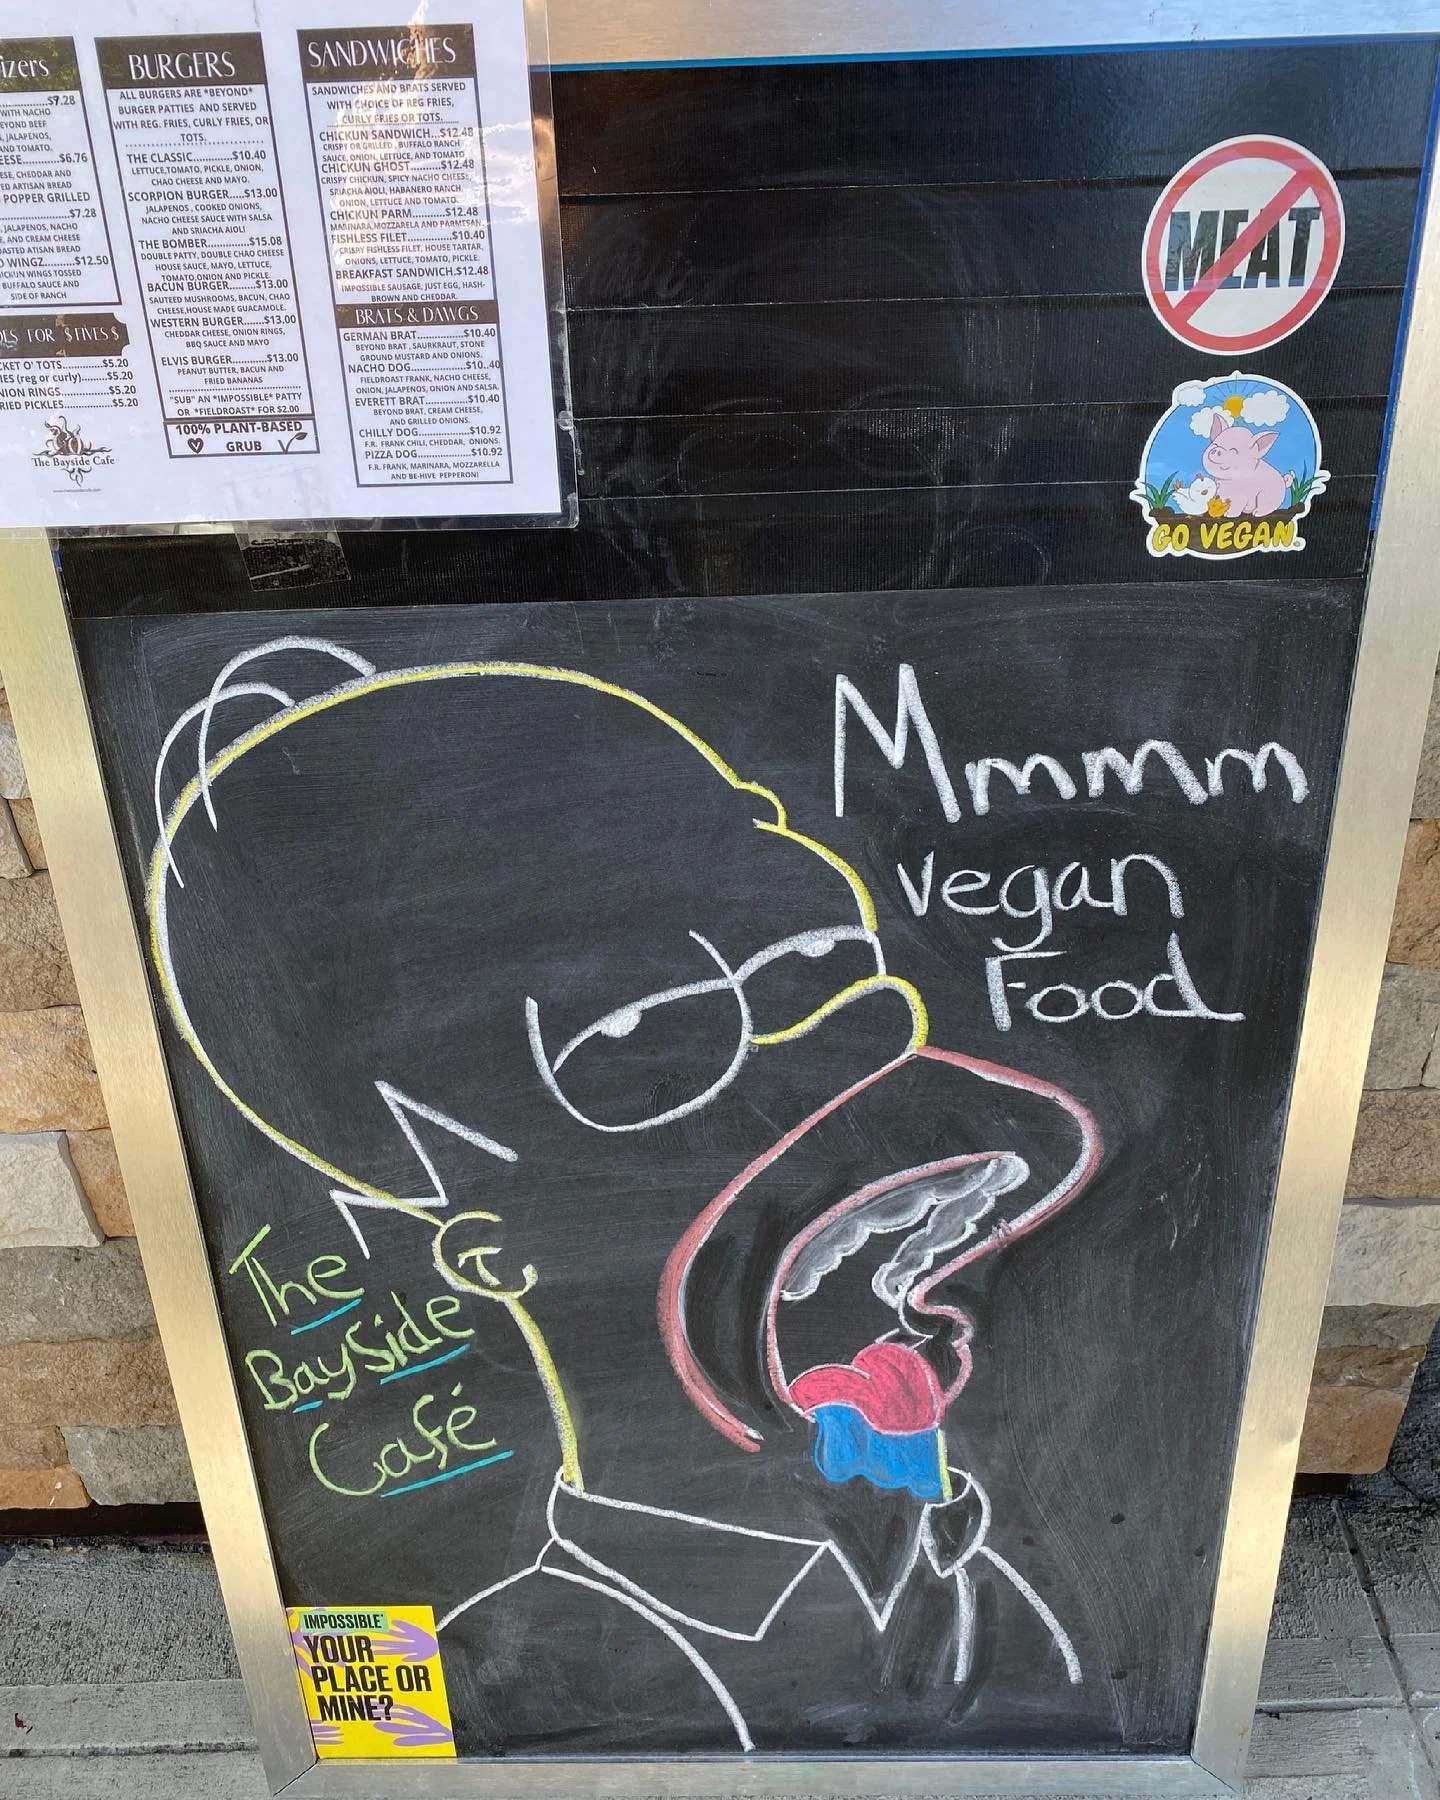 izers
...$7.28
WITH NACHO
EYOND BEEF
, JALAPENOS,
AND TOMATO.
EESE.........$6.76
ESE, CHEDDAR AND
ED ARTISAN BREAD
POPPER GRILLED
...$7.28
, JALAPENOS, NACHO
E, AND CREAM CHEESE
OASTED ATISAN BREAD
O WINGZ.........$12.50
ICKUN WINGS TOSSED
BUFFALO SAUCE AND
SIDE OF RANCH
FOR $FIVES$
CKET O' TOTS.........$5.20
IES (reg or curly)......$5.20
NION RINGS.........$5.20
RIED PICKLES.........$5.20
The Bayside Cafe
BURGERS
ALL BURGERS ARE *BEYOND*
BURGER PATTIES AND SERVED
WITH REG. FRIES, CURLY FRIES, OR
TOTS.
THE CLASSIC............$10.40
LETTUCE,TOMATO, PICKLE, ONION,
CHAO CHEESE AND MAYO.
SCORPION BURGER.....$13.00
JALAPENOS, COOKED ONIONS,
NACHO CHEESE SAUCE WITH SALSA
AND SRIACHA AIOLI
THE BOMBER...........$15.08
DOUBLE PATTY, DOUBLE CHAO CHEESE
HOUSE SAUCE, MAYO, LETTUCE,
TOMATO,ONION AND PICKLE.
BACUN BURGER.........$13.00
SAUTEED MUSHROOMS, BACUN, CHAO
CHEESE,HOUSE MADE GUACAMOLE.
WESTERN BURGER.......$13.00
CHEDDAR CHEESE, ONION RINGS,
BBQ SAUCE AND MAYO
ELVIS BURGER............$13.00
PEANUT BUTTER, BACUN AND
FRIED BANANAS
"SUB" AN *IMPOSSIBLE* PATTY
OR *FIELDROAST* FOR $2.00
100% PLANT-BASED
GRUB
SANDWICHES
SANDWICHES AND BRATS SERVED
WITH CHOICE OF REG FRIES,
CURLY FRIES OR TOTS.
CHICKUN SANDWICH...$12.48
CRISPY OR GRILLED, BUFFALO RANCH
SAUCE, ONION, LETTUCE, AND TOMATO
CHICKUN GHOST..........$12.48
CRISPY CHICKUN, SPICY NACHO CHEESE,
SRIACHA AIOLI, HABANERO RANCH,
ONION, LETTUCE AND TOMATO.
CHICKUN PARM...........$12.48
MARINARA,MOZZARELA AND PARMESAN
FISHLESS FILET..............$10.40
CRISPY FISHLESS FILET, HOUSE TARTAR,
ONIONS, LETTUCE, TOMATO, PICKLE.
BREAKFAST SANDWICH.$12.48
IMPOSSIBLE SAUSAGE, JUST EGG, HASH-
BROWN AND CHEDDAR.
BRATS & DAWGS
GERMAN BRAT............$10.40
BEYOND BRAT, SAURKRAUT, STONE
GROUND MUSTARD AND ONIONS.
NACHO DOG................$10..40
FIELDROAST FRANK, NACHO CHEESE,
ONION, JALAPENOS, ONION AND SALSA.
EVERETT BRAT..............$10.40
BEYOND BRAT, CREAM CHEESE,
AND GRILLED ONIONS.
CHILLY DOG.................$10.92
F.R. FRANK CHILI, CHEDDAR, ONIONS.
PIZZA DOG...................$10.92
F.R. FRANK, MARINARA, MOZZARELLA
AND BE-HIVE PEPPERONI
MEAT
GO VEGAN.
Mmmmm
Vegan
Food
The
BaySide
Café
IMPOSSIBLE
YOUR
PLACE OR
MINE?